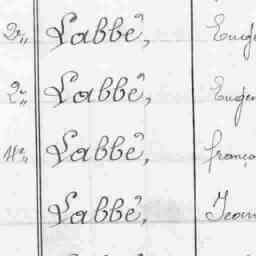 2" Labbé, Eugè
2" Labbé, Eugèn
4" Labbé, françо
Labbé, Jean